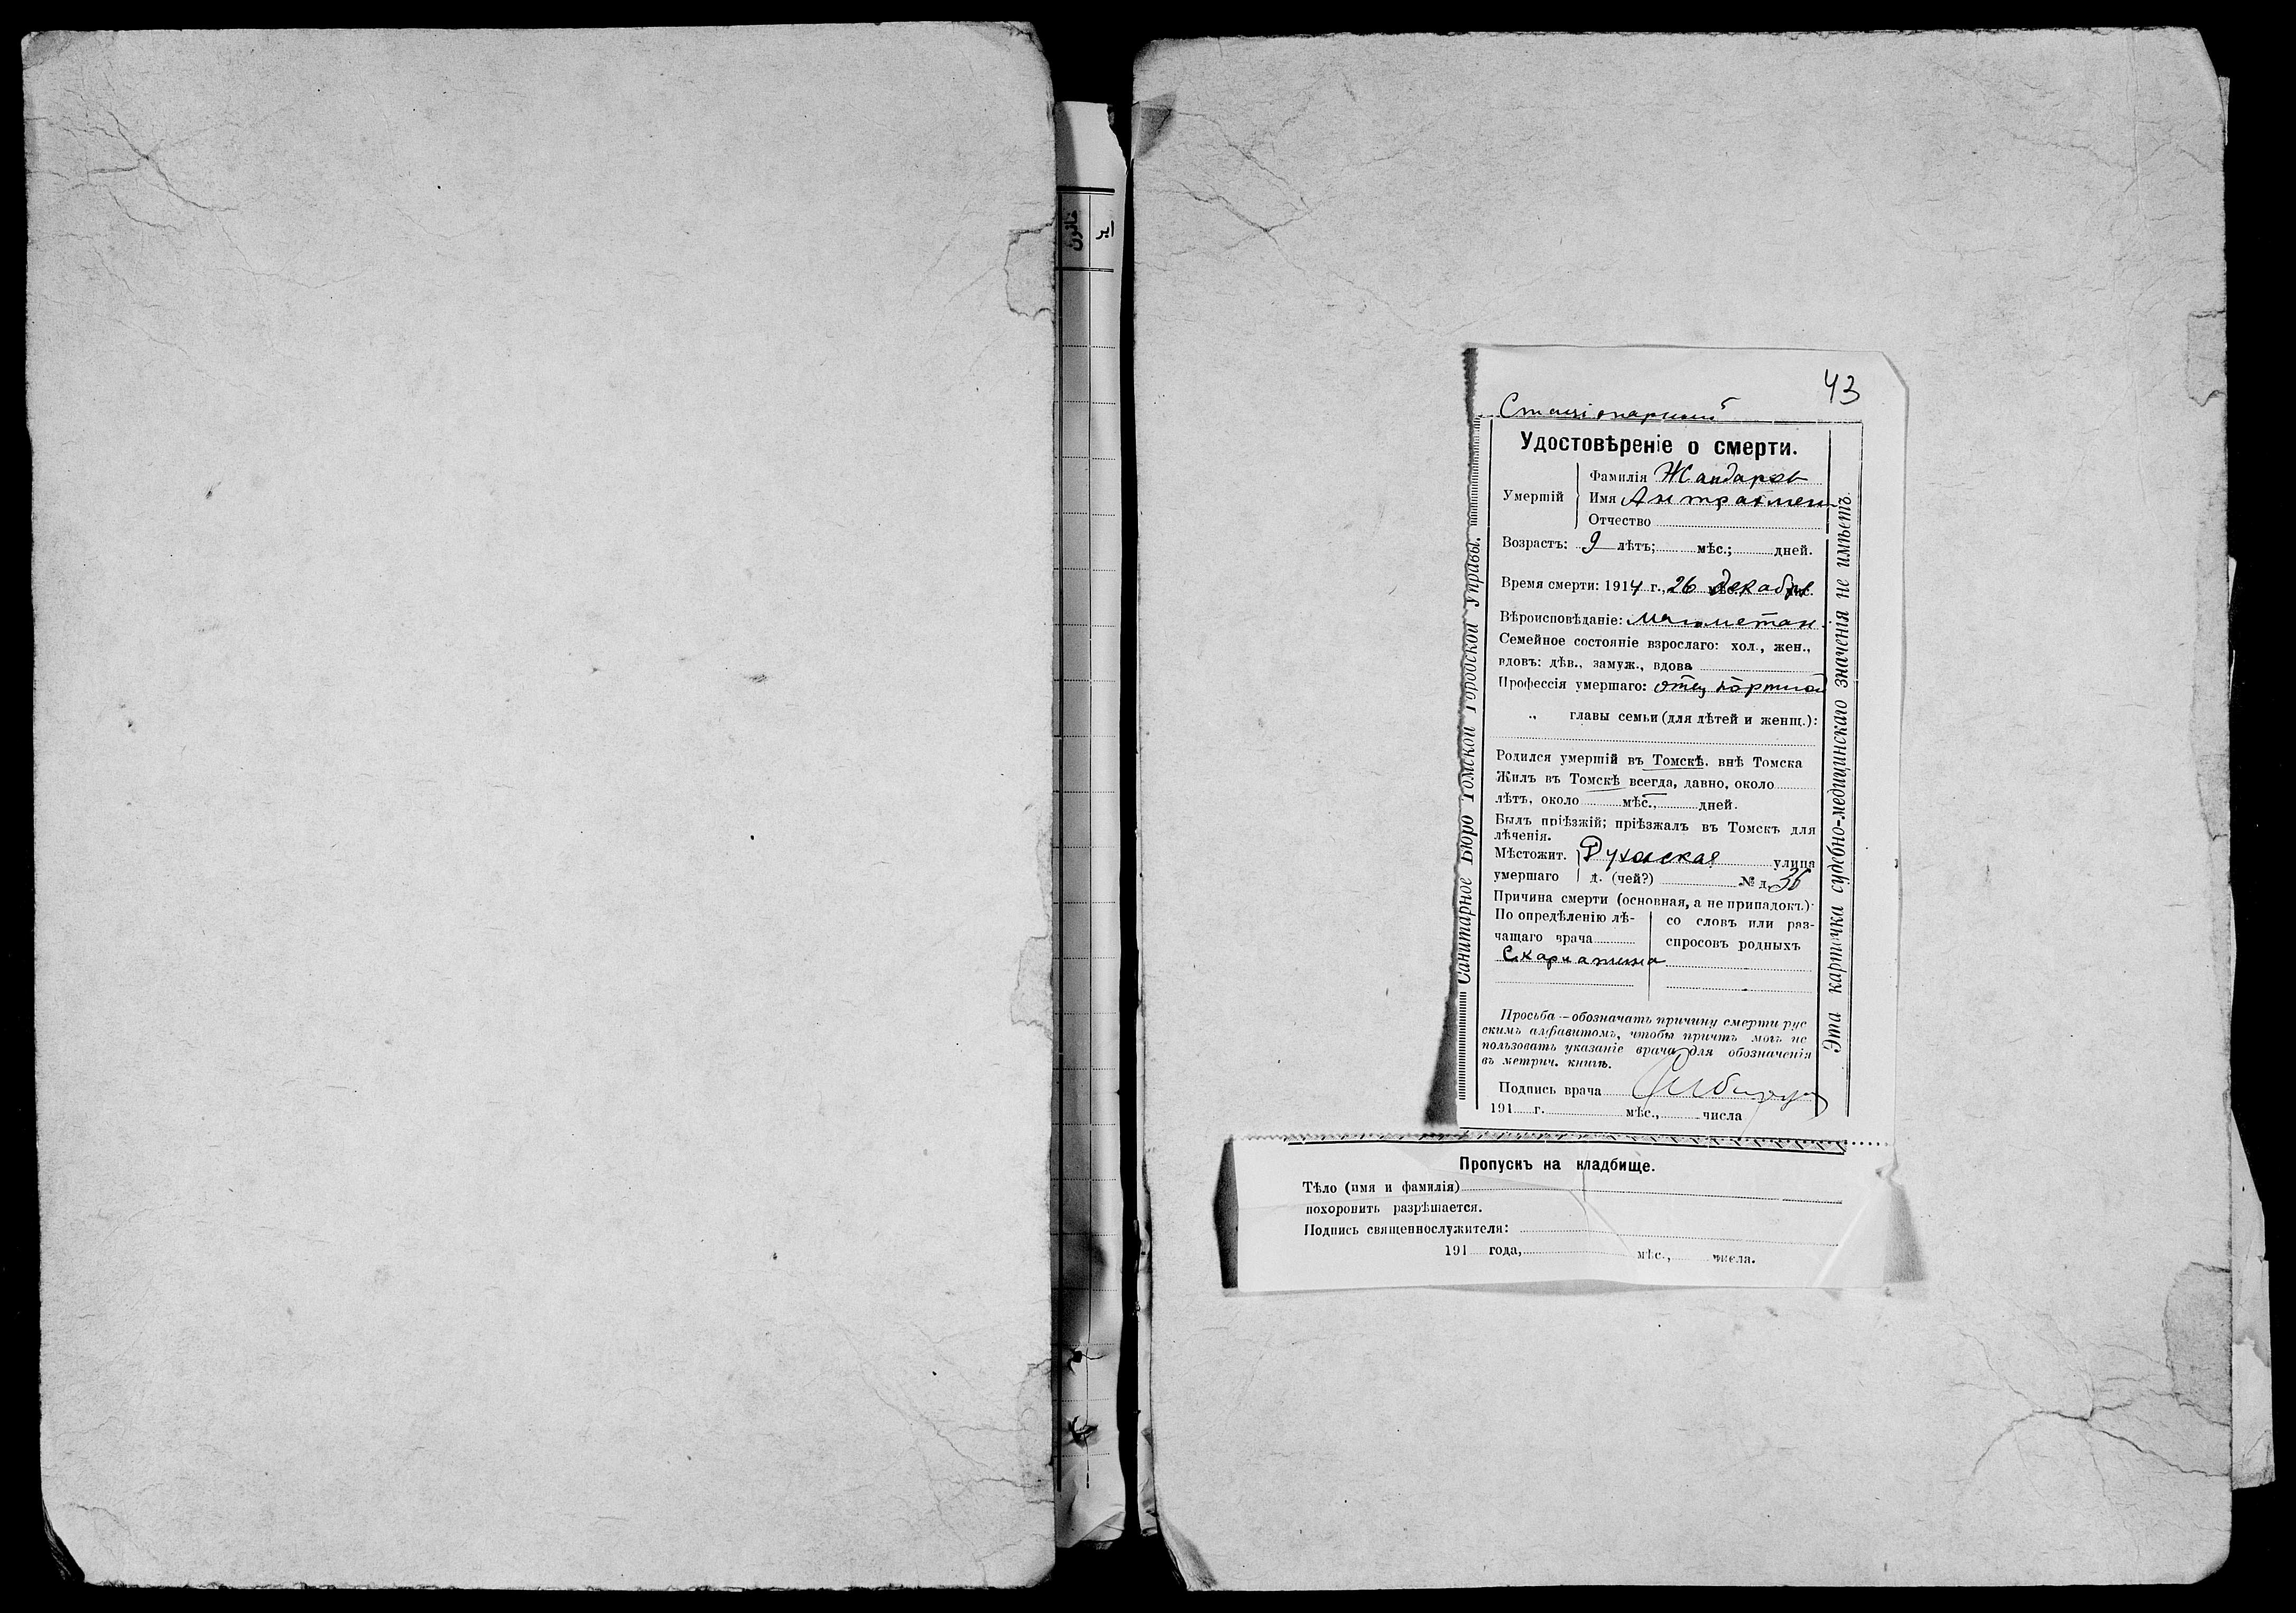 خاتون
ابر
43
Стаціонарный
Удостовѣреніе о смерти.
Фамилія Жандаровъ
Умершій Имя
Отчество
Возрастъ: 9 лѣтъ; мѣс.; дней.
Время смерти: 1914 г., 26 мѣс. Декабря
Вѣроисповѣданіе: магометан.
Семейное состояніе взрослаго: хол., жен.,
вдовъ: дѣв., замуж., вдова
Профессія умершаго: отец портной
„ главы семьи (для дѣтей и женщ.):
Родился умершій въ Томскѣ, внѣ Томска
Жилъ въ Томскѣ всегда, давно, около
лѣтъ, около мѣс., дней.
Былъ пріѣзжій; пріѣзжалъ въ Томскъ для
лѣченія.
Мѣстожит. Духовская улица
умершаго д. (чей?) № д. 36
Причина смерти (основная, а не припадокъ):
По опредѣленію лѣ-
чащаго врача
Скарлатина
со словъ или раз-
спросовъ родныхъ
Просьба — обозначать причину смерти рус
скимъ алфавитомъ, чтобы причтъ могъ ис
пользовать указаніе врача для обозначенія
въ метрич. книгѣ.
Подпись врача
191 г. мѣс., числа
Санитарное Бюро Томской Городской Управы.
Эта карточка судебно-медицинскаго значенія не имѣетъ.
Пропускъ на кладбище.
Тѣло (имя и фамилія)
похоронить разрѣшается.
Подпись священнослужителя:
191 года, мѣс., числа.